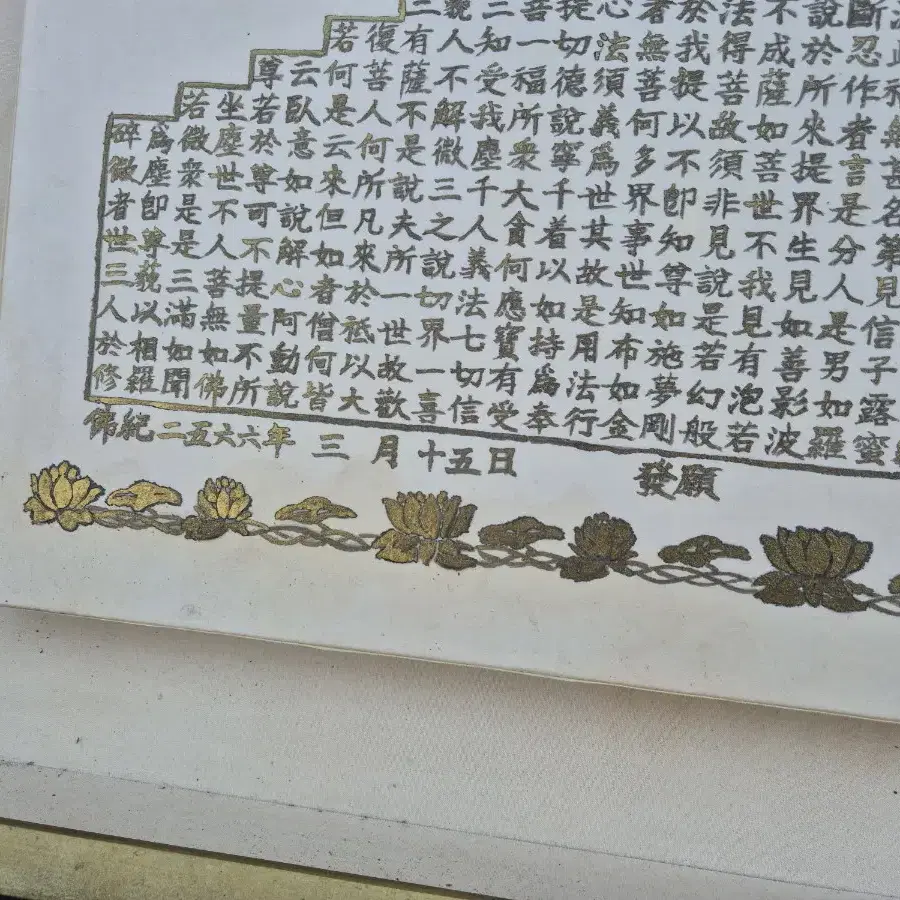 此福無甚名第見信子露蜜
斷忍作者言是分人是男如羅
說於所來提界生見如善影波
不成薩如菩世不我見有泡若
法得菩故須非見說是若幻般
於我提以不即知尊如施夢剛
者無善何多界事世知布如金
心法須義為世其故是用法行
提切德說寧千着以如持為奉
菩一福所衆大貪何應寶有受
三知受我塵千人義法七切信
藐人不解微三之說切界一喜
三有薩不是說夫所一世故歡
復菩人何所凡來於祇以大
若何是云來但如者僧何皆
云臥意如說解心阿動說
尊若於尊可不提量不所
坐塵世不人菩無如佛
若微衆是是三滿如聞
為塵即尊藐以相羅
碎微者世三人於修
佛紀二五六六年 三月十五日 發願